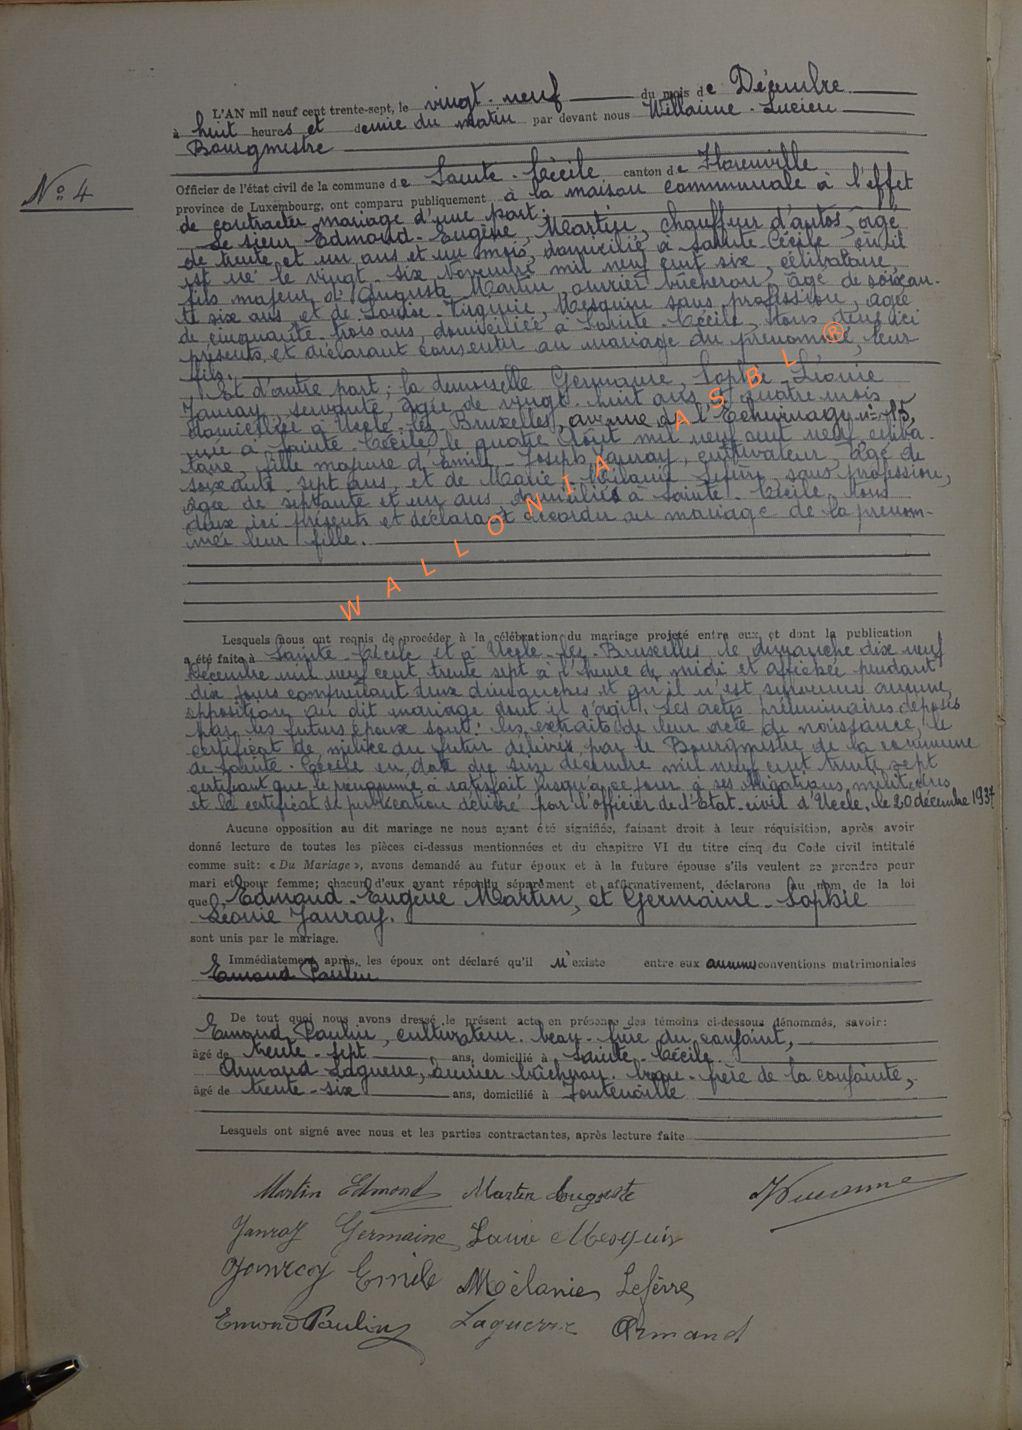 L'AN mil neuf cent trente-sept, le vingt-neuf du mois de Décembre
à huit heures et demie du matin par devant nous Willaime Lucien
Bourgmestre
N° 4
Officier de l'état civil de la commune de Sainte-Cécile canton de Florenville
province de Luxembourg, ont comparu publiquement à la maison communale à l'effet
de contracter mariage d'une part:
Le sieur Edmond-Eugène, Martin, chauffeur d'autos, âgé
de trente et un ans et un mois, domicilié à Sainte-Cécile où il
est né le vingt-six Novembre mil neuf cent six, célibataire,
fils majeur d'Auguste Martin, ouvrier bûcheron, âgé de soixan-
te six ans et de Louise-Virginie, Mesquin sans profession, âgée
de cinquante-trois ans, domiciliés à Sainte-Cécile, tous deux ici
présents et déclarant consentir au mariage du prénommé, leur
fils.
Et d'autre part; la demoiselle Germaine, Sophie-Léonie
Janray, servante, âgée de vingt-huit ans et quatre mois
domiciliée à Uccle-lez-Bruxelles, avenue de l'Echevinage n° 15,
née à Sainte-Cécile, le quatre Août mil neuf cent neuf céliba-
taire, fille majeure d'Emile-Joseph Janray, cultivateur, âgé de
soixante-sept ans, et de Marie-Mélanie Lefèvre, sans profession,
âgée de septante et un ans domiciliés à Sainte-Cécile, tous
deux ici présents et déclarant accorder au mariage de la prénom-
mée leur fille.
Lesquels nous ont requis de procéder à la célébration du mariage projeté entre eux et dont la publication
a été faite à Sainte-Cécile et à Uccle-lez-Bruxelles le dimanche dix-neuf
Décembre mil neuf cent trente sept à l'heure de midi et affichée pendant
dix jours comprenant deux dimanches et qu'il n'est survenu aucune
opposition au dit mariage dont il s'agit. Les actes préliminaires déposés
par les futurs époux sont: les extraits de leur acte de naissance, le
certificat de milice du futur délivré par le Bourgmestre de la commune
de Sainte-Cécile en date du seize décembre mil neuf cent trente sept
certifiant que le prénommé a satisfait jusqu'à ce jour à ses obligations militaires
et le certificat de publication délivré par l'officier de l'Etat-civil d'Uccle, le 20 décembre 1937
Aucune opposition au dit mariage ne nous ayant été signifiée, faisant droit à leur réquisition, après avoir
donné lecture de toutes les pièces ci-dessus mentionnées et du chapitre VI du titre cinq du Code civil intitulé
comme suit: « Du Mariage », avons demandé au futur époux et à la future épouse s'ils veulent se prendre pour
mari et pour femme; chacun d'eux ayant répondu séparément et affirmativement, déclarons au nom de la loi
que Edmond-Eugène Martin, et Germaine-Sophie
Léonie Janray.
sont unis par le mariage.
Immédiatement après, les époux ont déclaré qu'il n'existe entre eux aucunes conventions matrimoniales
Emond Paulin
De tout quoi nous avons dressé le présent acte en présence des témoins ci-dessous dénommés, savoir:
Emond Paulin, cultivateur, beau-frère du conjoint,
âgé de trente-sept ans, domicilié à Sainte-Cécile.
Armand Laguerre, ouvrier bûcheron, beau-frère de la conjointe,
âgé de trente-six ans, domicilié à Fontenoille
Lesquels ont signé avec nous et les parties contractantes, après lecture faite
Martin Edmond Martin Auguste Willaime
Janray Germaine Louise Mesquin
Janray Emile Mélanie Lefèvre
Emond Paulin Laguerre Armand
WALLONIA ASBL ®